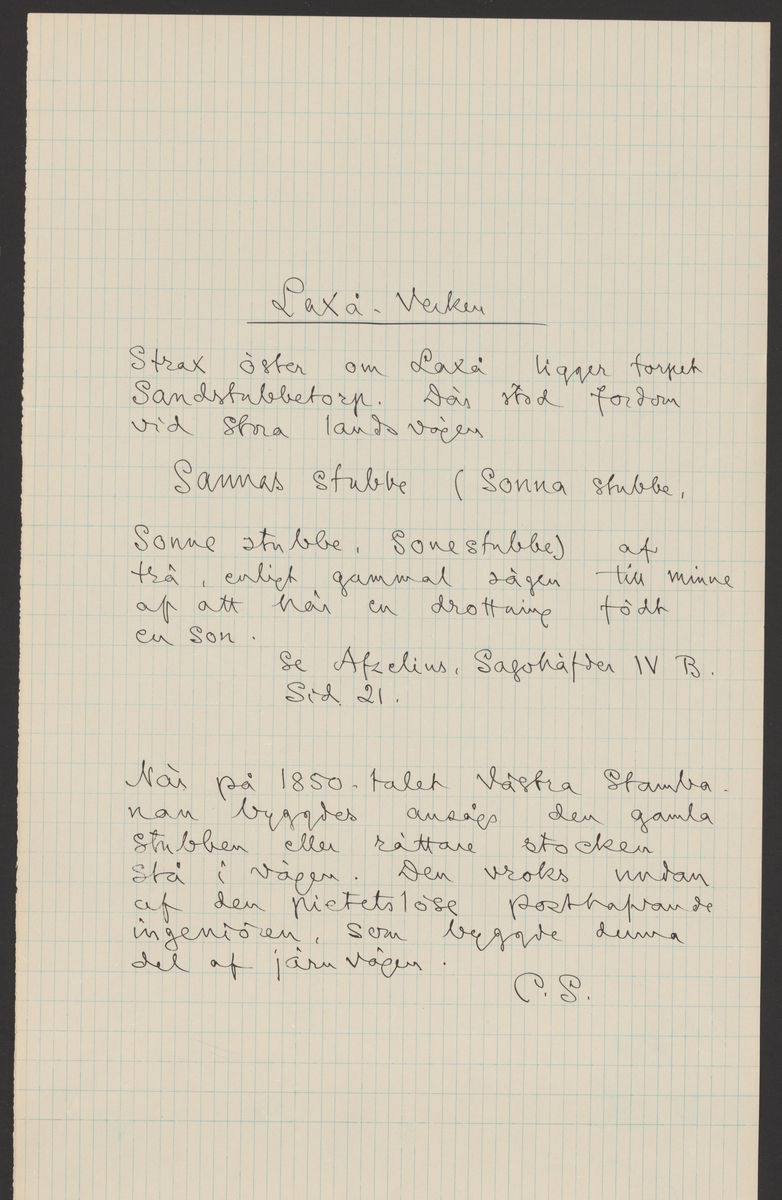 Laxå-Verken
Strax öster om Laxå ligger torpet
Sandstubbetorp. Där stod fordom
vid stora landsvägen
Sannas stubbe (Sonna stubbe,
Sonne stubbe, Sonestubbe) af
trä, enligt gammal sägen till minne
af att här en drottning födt
en son.
Se Afzelius, Sagohäfder IV B.
Sid. 21.
När på 1850-talet Västra Stamba-
nan byggdes ansågs den gamla
stubben eller rättare stocken
stå i vägen. Den vroks undan
af den pietetslöse posthafvande
ingeniören, som byggde denna
del af järnvägen.
C. S.